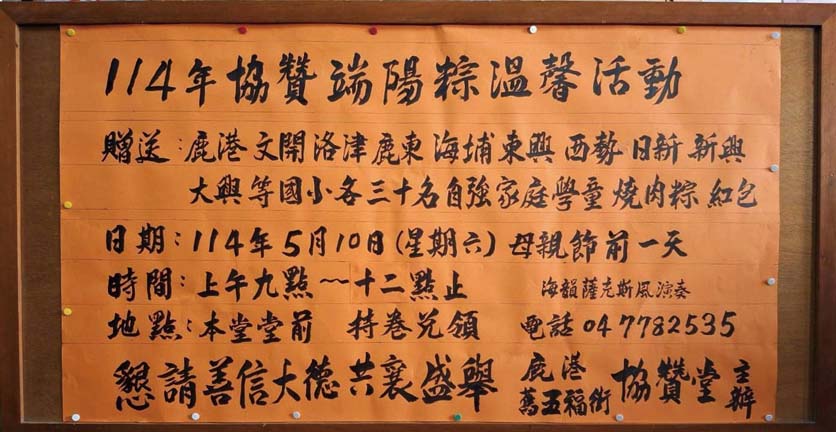 114年協贊端陽粽溫馨活動
贈送：鹿港 文開 洛津 鹿東 海埔 東興 西勢 日新 新興
大興等國小各三十名自強家庭學童 燒肉粽 紅包
日期：114年5月10日(星期六)母親節前一天
時間：上午九點～十二點止 海韻薩克斯風演奏
地點：本堂堂前 持卷兌領 電話 04 7782535
懇請善信大德共襄盛舉 鹿港 協贊堂 主辦
五福街